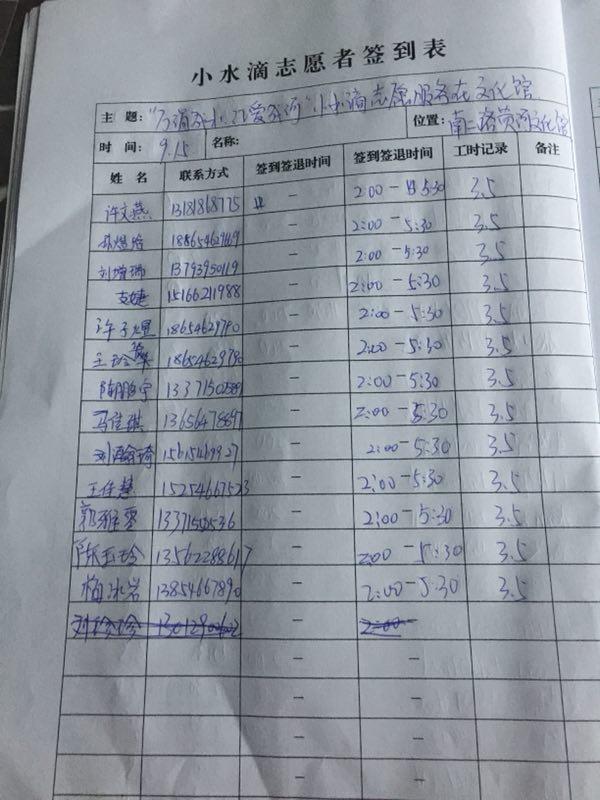 小水滴志愿者签到表
主 题: 小水滴志愿服务在文化馆
时 间: 9.15 名称: 位置: 南二路黄河文化馆
姓 名 联系方式 签到签退时间 签到签退时间 工时记录 备注
许文燕 13181868775 — 2:00 — 5:30 3.5
18865462969 — 2:00 — 5:30 3.5
刘增瑞 13793950119 — 2:00 — 5:30 3.5
支婕 15166211988 — 2:00 — 5:30 3.5
许子煜 18654629790 — 2:00 — 5:30 3.5
18654629790 — 2:00 — 5:30 3.5
陈鹏宇 — 2:00 — 5:30 3.5
马佳琪 13656478897 — 2:00 — 5:30 3.5
刘瀚琦 — 2:00 — 5:30 3.5
王佳慧 15254667523 — 2:00 — 5:30 3.5
郭雅雯 — 2:00 — 5:30 3.5
陈玉玲 13562288617 — 2:00 — 5:30 3.5
梅冰岩 13854667890 — 2:00 — 5:30 3.5
刘珍珍 — 2:00 —
— —
— —
— —
— —